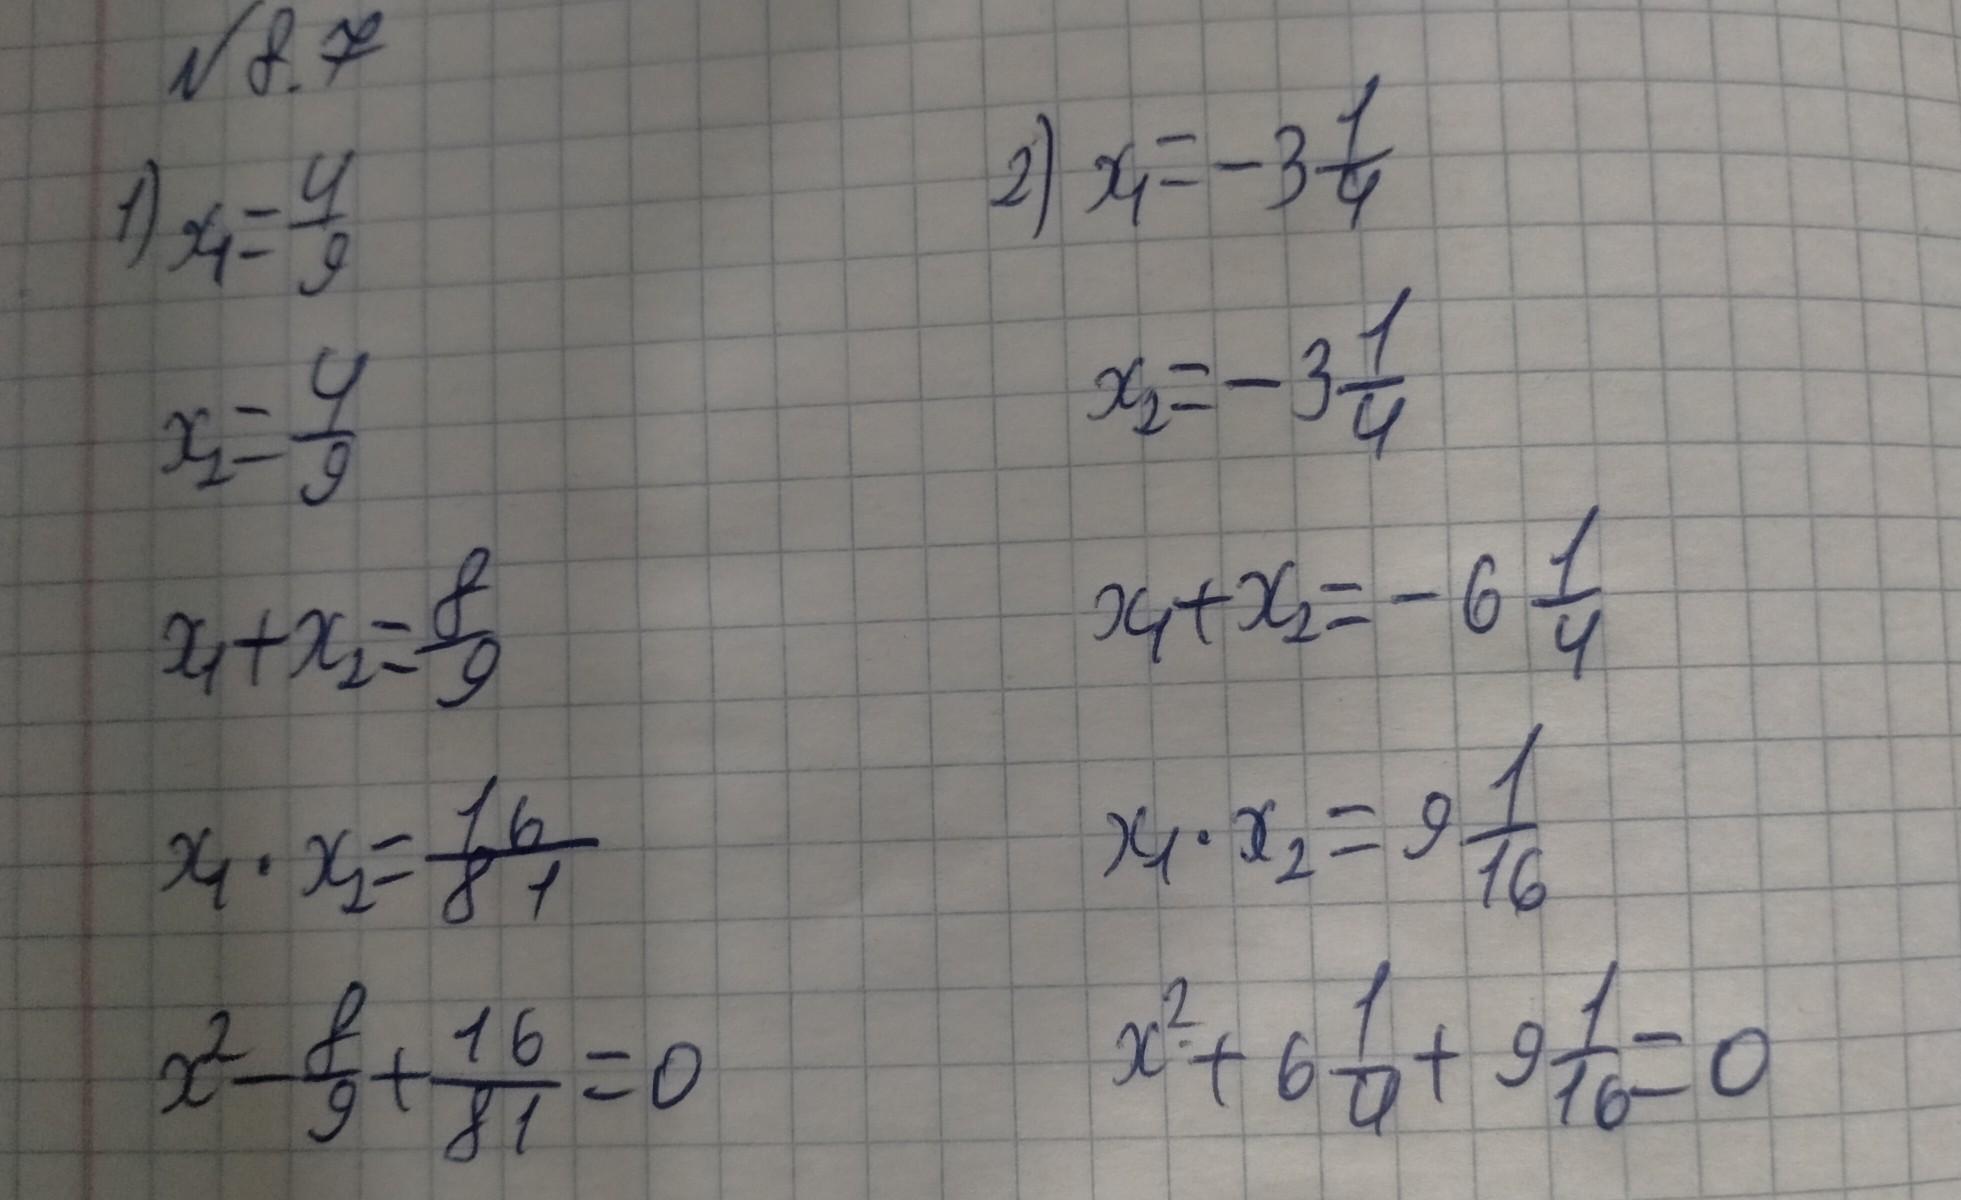 № 8.7
1) x₁ = 4/9
x₂ = 4/9
x₁ + x₂ = 8/9
x₁ · x₂ = 16/81
x² - 8/9 + 16/81 = 0
2) x₁ = -3 1/4
x₂ = -3 1/4
x₁ + x₂ = -6 1/4
x₁ · x₂ = 9 1/16
x² + 6 1/4 + 9 1/16 = 0